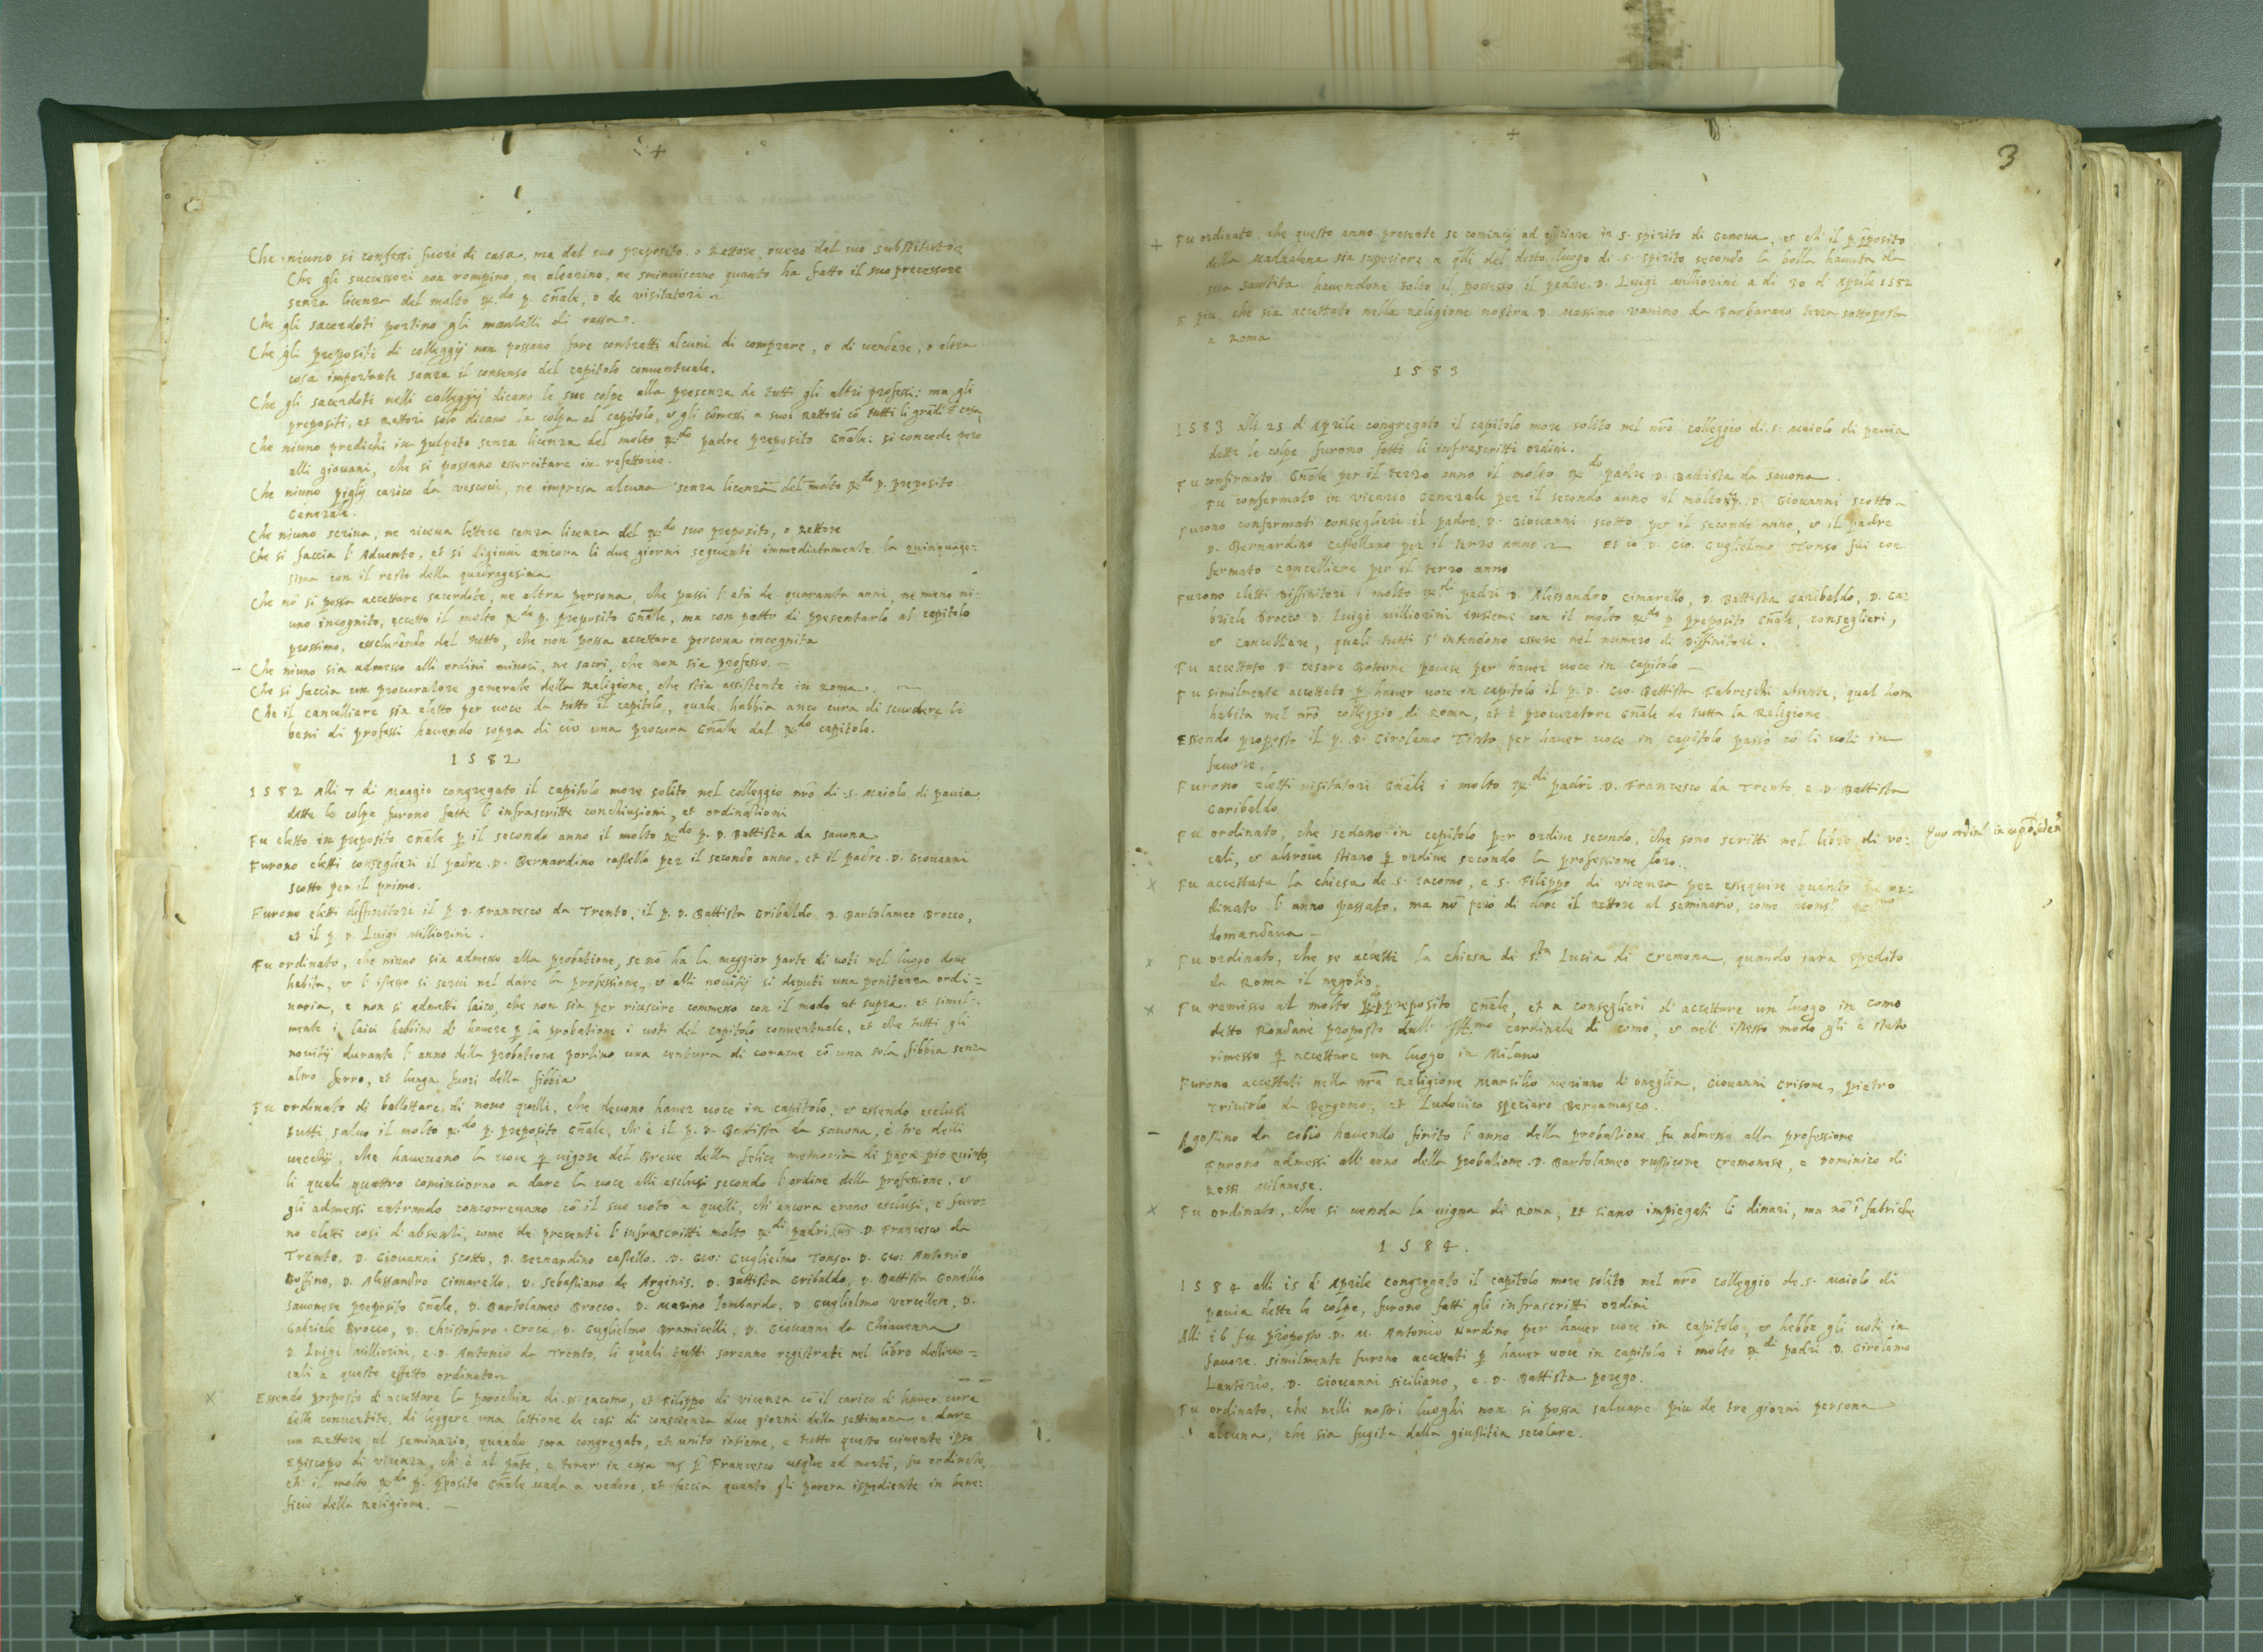 +
Che niuno si confessi fuori di casa, ma dal suo preposito o Rettore, overo dal suo substituto
Che gli successori non rompino, ne alterino, ne sminuiscano quanto ha fatto il suo precessore
senza licenza del molto Rdo p. Gñale, o de visitatori
Che gli sacerdoti portino gli mantelli di rassa.
Che gli prepositi di colleggij non possano fare contratti alcuni di comprare, o di vendere, o altra
cosa importante senza il consenso del capitolo conventuale.
Che gli sacerdoti nelli colleggij dicano le sue colpe alla presenza de tutti gli altri professi: ma gli
prepositi, et Rettori solo dicano la colpa al capitolo, et gli cõmessi a suoi Rettori cõ tutti li
Che niuno predichi in pulpito senza licenza del molto Rdo padre preposito Gñale: si concede pero
alli giovani, che si possano essercitare in refettorio.
Che niuno piglij carico da vescovi, ne impresa alcuna senza licenza del molto Rdo p. preposito
Generale.
Che niuno scriva, ne riceva lettere senza licenza del Rdo suo preposito, o Rettore
Che si faccia l'Advento, et si digiuni ancora li due giorni seguenti immediatamente la quinquage=
sima con il resto della quadragesima
Che nõ si possa accettare sacerdote, ne altra persona, che passi l'età de quaranta anni, ne meno ni=
uno incognito, eccetto il molto Rdo p. preposito Gñale, ma con patto di presentarlo al capitolo
prossimo, escludendo del tutto, che non possa accettare persona incognita
- Che niuno sia admesso alli ordini minori, ne sacri, che non sia professo. -
Che si faccia un procuratore generale della Religione, che stia assistente in Roma.
Che il cancelliere sia eletto per voce da tutto il capitolo, quale habbia anco cura di scuodere li
beni di professi havendo sopra di ciò una procura Gñale dal Rdo capitolo.
1582
1582 Alli 7 di Maggio congregato il capitolo more solito nel colleggio nrõ di .s. Maiolo di pavia
dette le colpe furono fatte l'infrascritte conchiusioni, et ordinationi
Fu eletto in preposito Gñale p il secondo anno il molto Rdo p. D. Battista da Savona
Furono eletti conseglieri il padre .D. Bernardino Castello per il secondo anno, et il padre .D. Giovanni
Scotto per il primo.
Furono eletti diffinitori il p D. Francesco da Trento, il p. D. Battista Gribaldo, D. Bartolameo Brocco,
et il p. D. Luigi Milliorini.
Fu ordinato, che niuno sia admesso alla probatione, se nõ ha la maggior parte di voti nel luogo dove
habita, et l'istesso si servi nel dare la professione, et alli novitij si deputi una penitenza ordi=
naria, e non si admetti laico, che non sia per riuscire commesso con il modo ut supra. et simil=
mente i laici habbino di havere p la probatione i voti del capitolo conventuale, et che tutti gli
novitij durante l'anno della probatione portino una centura di corame cõ una sola fibbia senza
altro ferro, et lunga fuori della fibbia
Fu ordinato di ballottare di novo quelli, che devono haver voce in capitolo, et essendo esclusi
tutti salvo il molto Rdo p. preposito Gñale, ch'è il p. D. Battista da Savona, e tre delli
vecchij, che havevano la voce p vigore del Breve della felice memoria di papa pio quinto,
li quali quattro cominciorno a dare la voce alli esclusi secondo l'ordine della professione, et
gli admessi entrando concorrevano cõ il suo voto a quelli, ch'ancora erano esclusi, e furo=
no eletti cosi d'absenti, come de presenti l'infrascritti molto Rdi padri .D. Francesco da
Trento, D. Giovanni Scotto, D. Bernardino Castello. D. Gio: Guglielmo Tonso. D. Gio: Antonio
Boffino, D. Alessandro Cimarello, D. Sebastiano de Arginis. D. Battista Gribaldo, D. Battista Gonellio
Savonese preposito Gñale, D. Bartolameo Brocco, D. Marino Lombardo, D. Guglielmo Vercellese, D.
Gabriele Brocco, D. Christoforo Croce, D. Guglielmo Bramicelli, D. Giovanni da Chiavenna
D. Luigi Milliorini, e D. Antonio da Trento, li quali tutti saranno registrati nel libro delli vo=
cali a questo effetto ordinato
x Essendo proposto d'accettare la parochia di .ss. Iacomo, et Filippo di Vicenza cõ il carico d'haver cura
delle convertite, di leggere una lettione de casi di conscienza due giorni della settimana e dare
un Rettore al seminario, quando sara congregato, et unito insieme, e tutto questo vivente ipso
Episcopo di Vicenza, ch'è al pñte, e tener in casa Francesco usque ad mortẽ, fu ordinato,
ch'il molto Rdo p. p̃posito Gñale vada a vedere, et faccia quanto gli parera ispediente in bene=
ficio della Religione. -
+
3
+ Fu ordinato, che questo anno presente se cominij ad officiare in S. Spirito di Genova, et ch'il p. p̃posito
della Maddalena sia superiore a q̃lli del detto luogo di .S. Spirito secondo la bolla havuta da
sua santita havendone tolto il possesso il padre .D. Luigi Milliorini a di 20 d'Aprile 1582
E piu che sia accettato nella Religione nostra D. Massimo Vanino da Barbarano terra sottoposta
a Roma
1583
1583 alli 25 d'Aprile congregato il capitolo more solito nel nrõ colleggio di .s. Maiolo di pavia
dette le colpe furono fatti li infrascritti ordini.
Fu confirmato Gñale per il terzo anno il molto Rdo padre D. Battista da Savona.
Fu confermato in vicario Generale per il secondo anno il molto Rdo p. D. Giovanni Scotto
Furono confermati conseglieri il padre .D. Giovanni Scotto per il secondo anno, et il padre
D. Bernardino Castellano per il terzo anno Et io D. Gio. Guglielmo Tonso fui con
fermato cancelliere per il terzo anno
Furono eletti Diffinitori i molto Rdi padri D. Alessandro Cimarello, D. Battista Garibaldo, D. Ga=
briele Brocco D. Luigi Milliorini insieme con il molto Rdo p. preposito Gñale, conseglieri,
et Cancelliere, quali tutti s'intendono essere nel numero di Diffinitori.
Fu accettato .D. Cesare Bottune pavese per haver voce in capitolo -
Fu similmente accettato p haver voce in capitolo il p. D. Gio. Battista Fabreschi absente, qual hora
habita nel nrõ colleggio di Roma, et è procuratore Gñale de tutta la Religione
Essendo proposto il p. D. Girolamo Tinto per haver voce in capitolo passò cõ li voti in
favore.
Furono eletti visitatori Gñali i molto Rdi padri D. Francesco da Trento, e D. Battista
Garibaldo
Fu ordinato, che sedano in capitolo per ordine secondo, che sono scritti nel libro di vo=
cali, et altrove stiano p ordine secondo la professione loro.
Quo ordine in
x Fu accettata la chiesa de .S. Iacomo, e S. Filippo di Vicenza per essequire quanto fu or=
dinato l'anno passato, ma nõ però di dare il Rettore al seminario, come
domandava -
x Fu ordinato, che se accetti la chiesa di Sta Lusia di Cremona, quando sara spedito
da Roma il negotio.
x Fu remisso al molto Rdo p. preposito Gñale, et a conseglieri d'accettare un luogo in Como
detto Rondane proposto dall' Illmo Cardinale di Como, et nell'istesso modo gli è stato
rimesso p accettare un luogo in Milano
Furono accettati nella nrã Religione Marsilio Meriano di Oneglia, Giovanni Grisone, pietro
Triviolo da Bergomo, et Ludovico Speciaro Bergamasco.
- Agostino da Cobio havendo finito l'anno della probatione fu admesso alla professione
Furono admessi all'anno della probatione .D. Bartolameo Rusticone Cremonese, e Dominico di
Rossi Milanese.
x Fu ordinato, che si venda la vigna di Roma, et siano impiegati li dinari, ma nõ ĩ fabriche
1584.
1584 alli 15 d'Aprile congregato il capitolo more solito nel nrõ colleggio de .s. Maiolo di
pavia dette le colpe, furono fatti gli infrascritti ordini
Alli 16 fu proposto .D. M. Antonio Nardino per haver voce in capitolo, et hebbe gli voti in
favore. similmente furono accettati p haver voce in capitolo i molto Rdi padri .D. Girolamo
Lantorio, .D. Giovanni Siciliano, e .D. Battista perego.
Fu ordinato, che nelli nostri luoghi non si possa salvare piu de tre giorni persona
alcuna, che sia fugita della giustitia secolare.